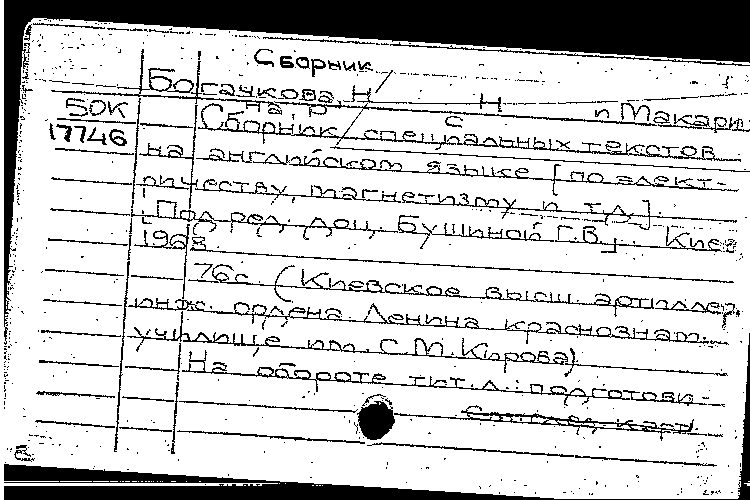 Сборник
Богачкова, Н Н п Макари
на, Р С
50К Сборник специальных текстов
17746
на английском языке [по элект-
ричеству, магнетизму и т.д.].
[Под ред. доц. Бушиной Г.В.]. Киев
1968.
76с. (Киевское высш. артиллер.
инж. ордена Ленина краснознам.
училище им. С.М.Кирова)
На обороте тит.л.: подготови-
См. след. карт.